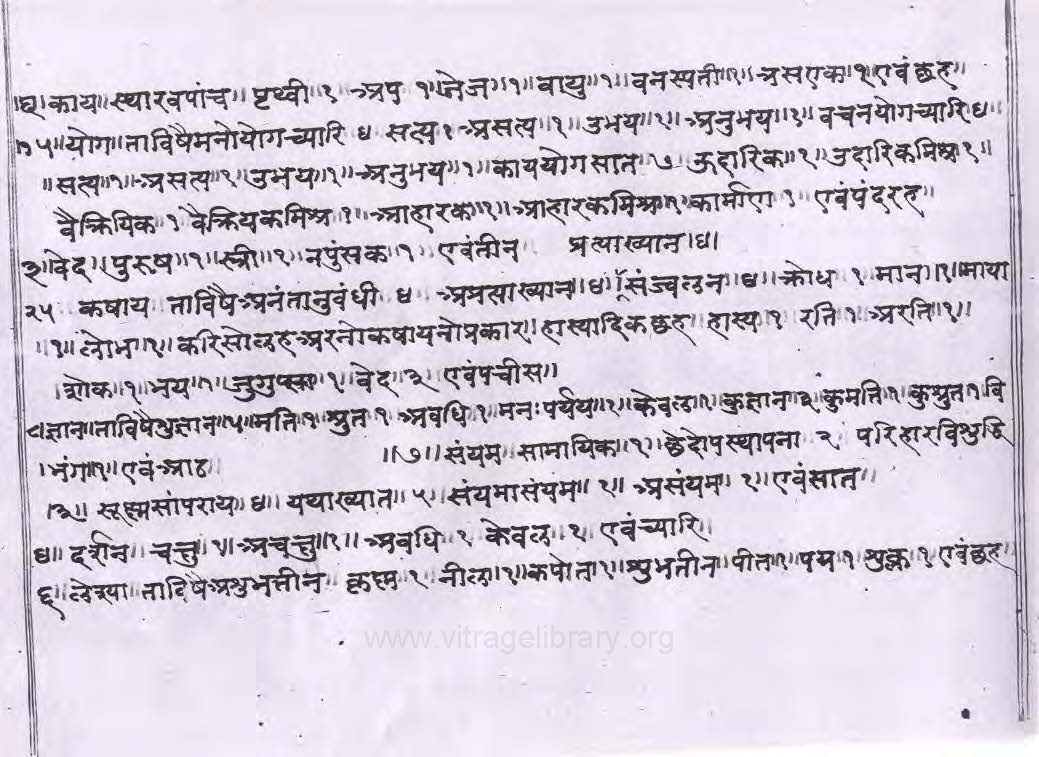 ।६। काय॥ स्थावरपांच॥ पृथ्वी १ अप १॥ तेज॥१॥ वायु॥१॥ वनस्पती॥१॥ त्रसएक॥१॥ एवं छह॥
१५॥ योग॥ ताविषैमनोयोगच्यारि ४ सत्य १ असत्य॥१॥ उभय॥१॥ अनुभय॥१॥ वचनयोगच्यारि॥४॥
॥सत्य॥१॥ असत्य॥१॥ उभय॥१॥ अनुभय॥१॥ काययोगसात॥७॥ ऊदारिक॥१॥ उदारिकमिश्र॥१॥
वैक्रियिक १ वैक्रियकमिश्र १॥ आहारक॥१॥ आहारकमिश्र॥१॥ कार्माण १ एवंपंदरह॥
३॥ वेद॥ पुरुष॥१॥ स्त्री॥१॥ नपुंसक॥१॥ एवंतीन प्रत्याख्यान॥४॥
२५ कषाय ताविषै अनंतानुबंधी ४ अप्रत्याख्यान॥४॥ संज्वलन॥४॥ क्रोध १ मान॥१॥ माया
॥१॥ लोभ॥१॥ करिसोलह अरनोकषायनोप्रकार॥ हास्यादिकछह॥ हास्य १ रति १ अरति॥१॥
।शोक॥१॥ भय॥१॥ जुगुप्सा॥१॥ वेद॥३॥ एवंपचीस॥
८ ज्ञान॥ ताविषैसुज्ञान॥५॥ मति॥१॥ श्रुत १ अवधि॥१॥ मनःपर्यय॥१॥ केवल॥१॥ कुज्ञान॥३॥ कुमति॥१॥ कुश्रुत॥१॥ वि
।भंग॥१॥ एवं आठ ॥७॥ संयम॥ सामायिक॥१॥ छेदोपस्थापना २ परिहारविशुद्धि
।३॥ सूक्ष्मसांपराय॥४॥ यथाख्यात॥५॥ संयमासंयम॥१॥ असंयम १॥ एवंसात॥
४॥ दर्शन॥ चक्षु १॥ अचक्षु॥१॥ अवधि १ केवल १ एवंच्यारि॥
६ लेश्या ताविषै अशुभतीन कृष्ण १ नील॥१॥ कपोत॥१॥ शुभतीन पीत॥१॥ पद्म १ शुक्ल १ एवंछह
www.vitragelibrary.org